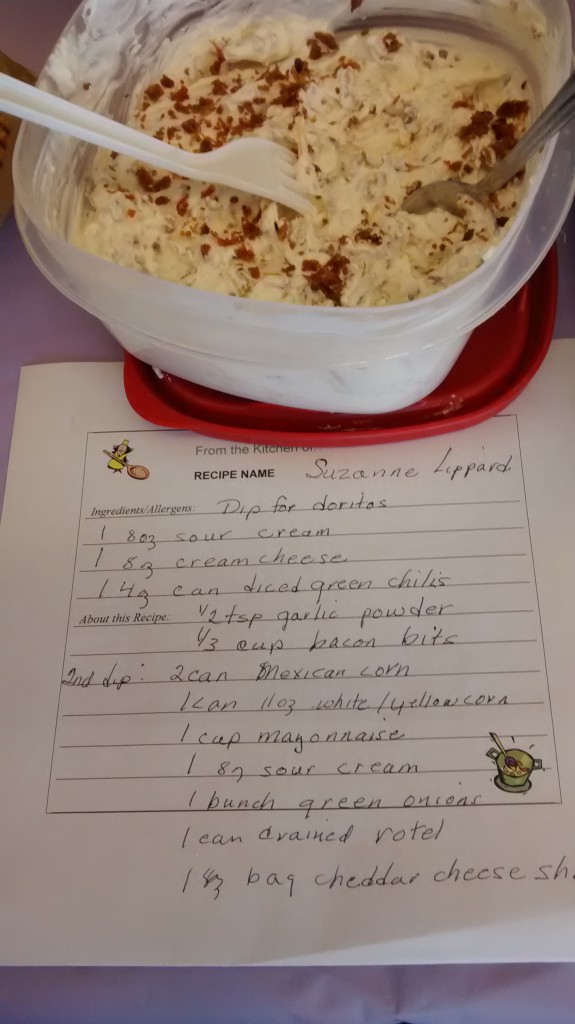 From the Kitchen of:
RECIPE NAME Suzanne Lippard
Ingredients/Allergens: Dip for doritos
1 8oz sour cream
1 8oz cream cheese
1 4oz can diced green chilis
About this Recipe: 1/2 tsp garlic powder
1/3 cup bacon bits
2nd dip: 2 can Mexican corn
1 can 11oz white/yellow corn
1 cup mayonnaise
1 8oz sour cream
1 bunch green onions
1 can drained rotel
1 bag cheddar cheese sh